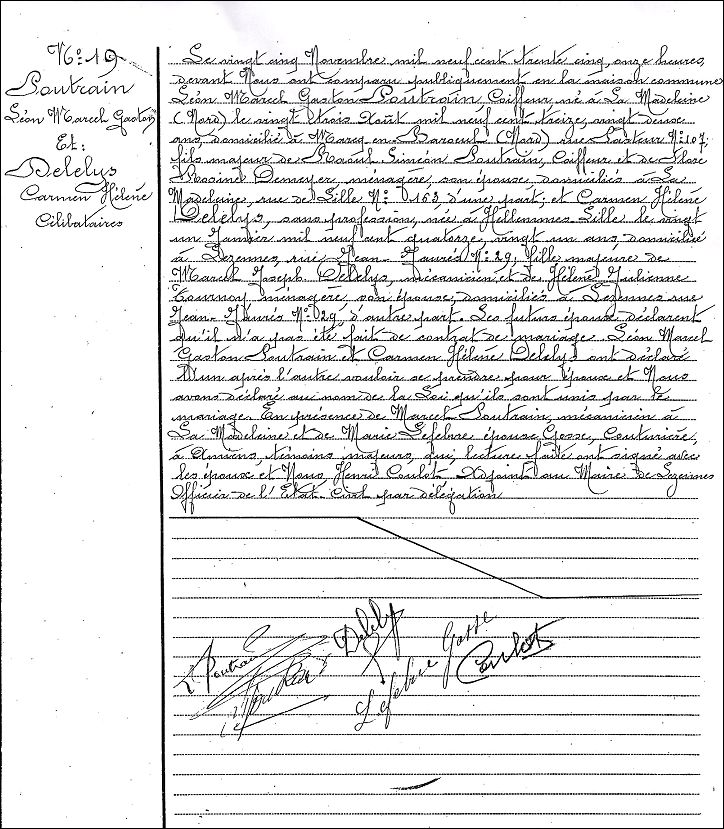 N° 19
Poutrain
Léon Marcel Gaston
Et:
Delelys
Carmen Hélène
Célibataires
Le vingt cinq Novembre mil neuf cent trente cinq, onze heures,
devant Nous ont comparu publiquement en la maison commune
Léon Marcel Gaston Poutrain Coiffeur né à La Madeleine
(Nord) le vingt trois Août mil neuf cent treize, vingt deux
ans, domicilié à Marcq-en-Baroeul (Nord) rue Pasteur N° 107,
fils majeur de Raoul Siméon Poutrain, Coiffeur et de Flore
Rosine Demeyer, ménagère, son épouse, domiciliés à La
Madeleine, rue de Lille N° 163, d'une part; et Carmen Hélène
Delelys, sans profession, née à Hellemmes-Lille le vingt
un Janvier mil neuf cent quatorze, vingt un ans, domiciliée
à Lezennes, rue Jean-Jaurès N° 29, fille majeure de
Marcel Joseph Delelys, mécanicien et de Hélène Julienne
Tournoy ménagère, son épouse, domiciliés à Lezennes rue
Jean-Jaurès N° 29, d'autre part. Les futurs époux déclarent
qu'il n'a pas été fait de contrat de mariage. Léon Marcel
Gaston Poutrain et Carmen Hélène Delelys ont déclaré
l'un après l'autre vouloir se prendre pour époux et Nous
avons déclaré au nom de la Loi qu'ils sont unis par le
mariage. En présence de Marcel Poutrain, mécanicien à
La Madeleine et de Marie Lefebvre épouse Gosse, Couturière,
à Amiens, témoins majeurs, qui, lecture faite ont signé avec
les époux et Nous, Henri Coulot Adjoint au Maire de Lezennes
Officier de l'Etat-Civil par délégation
L Poutrain
Delelys
Lefebvre Gosse
Coulot